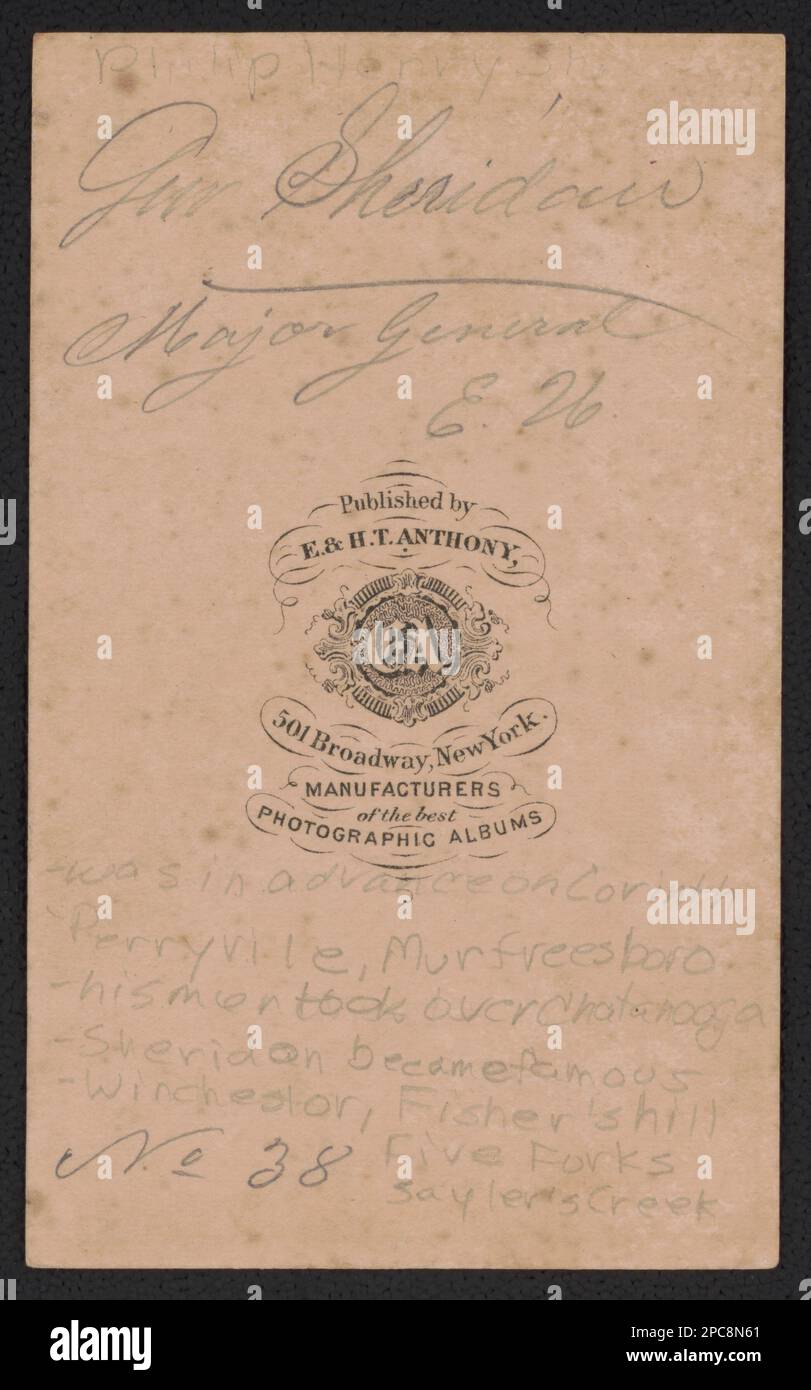 Philip Henry She
Gen Sheridan
Major General
Published by
E. & H.T. ANTHONY,
501 Broadway, New York.
MANUFACTURERS
of the best
PHOTOGRAPHIC ALBUMS
-was in advance on Corinth
Perryville, Murfreesboro
-his men took over Chatanooga
-Sheridan became famous
-Winchestor, Fisher's hill
Five Forks
Sayler's Creek
No 38
alamy
alamy
alamy
Image ID: 2PC8N61
www.alamy.com